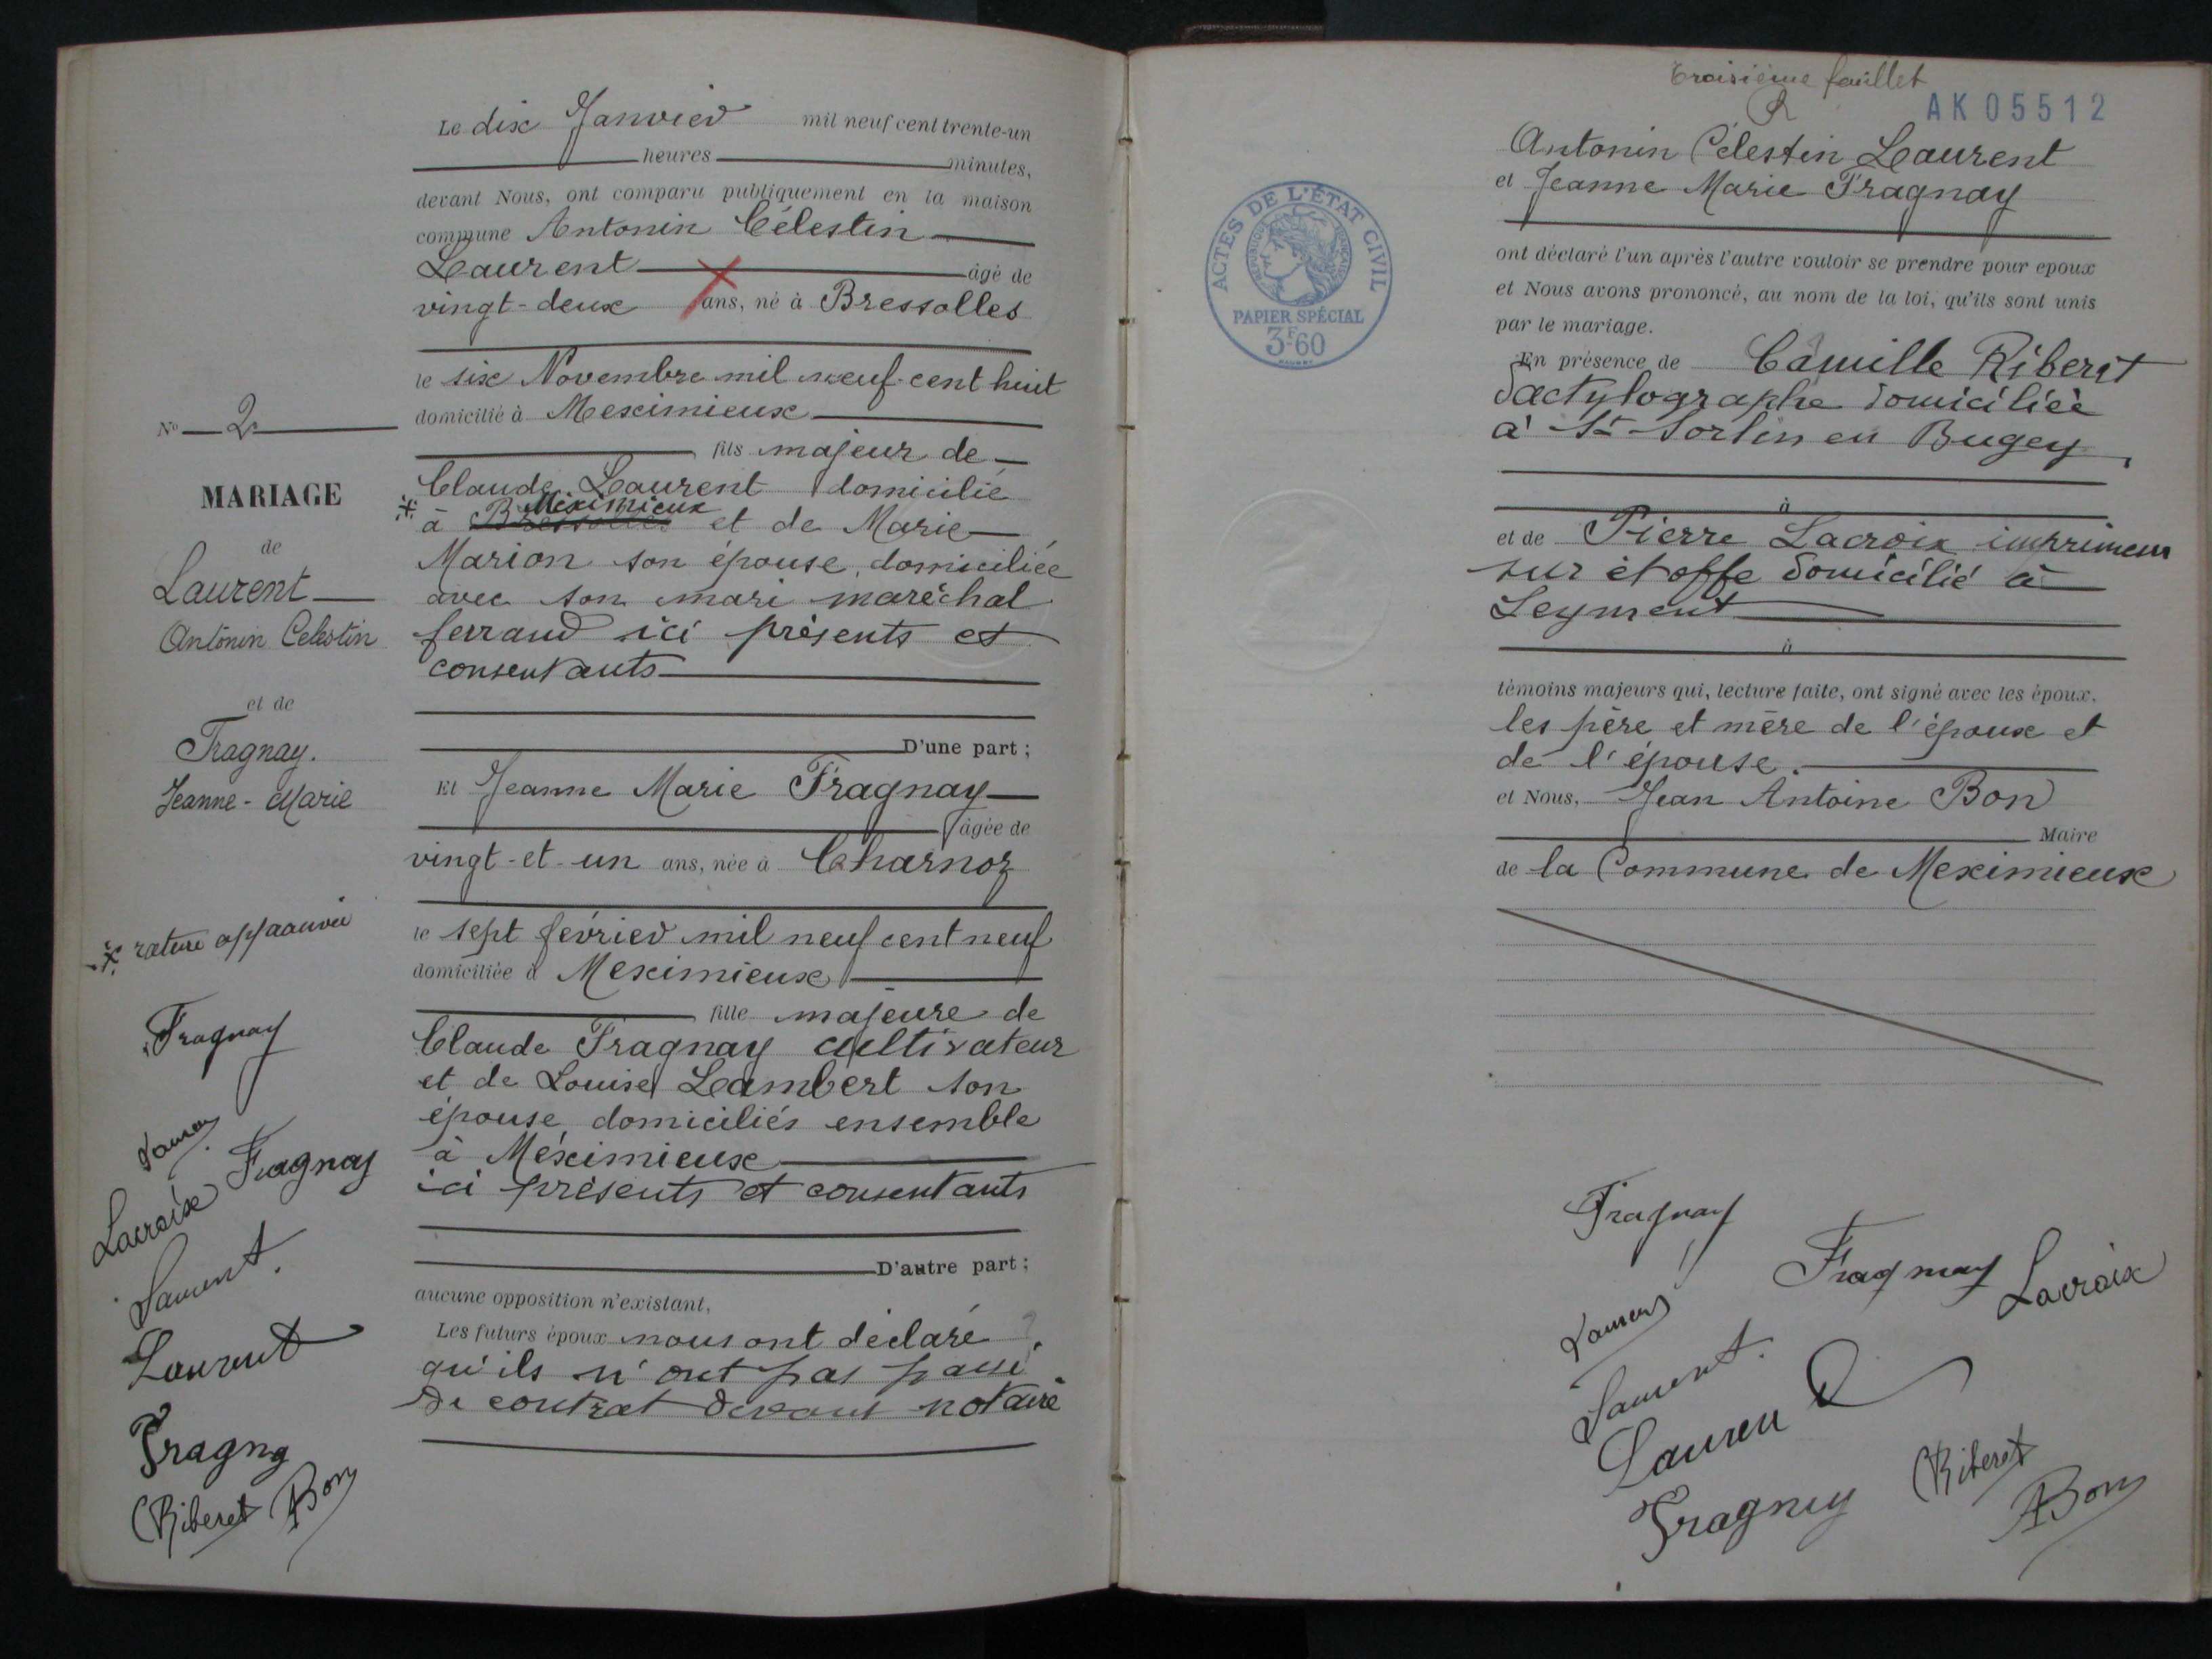 Le dix Janvier mil neuf cent trente-un
heures minutes,
devant Nous, ont comparu publiquement en la maison
commune Antonin Célestin
Laurent âgé de
vingt-deux ans, né à Bressolles
le six Novembre mil neuf cent huit
domicilié à Meximieux
fils majeur de
Claude Laurent domicilié
à Bressolles Meximieux et de Marie
Marion son épouse, domiciliée
avec son mari maréchal
ferrand ici présents et
consentants
D'une part ;
Et Jeanne Marie Fragnay
âgée de
vingt-et-un ans, née à Charnoz
le sept février mil neuf cent neuf
domiciliée à Meximieux
fille majeure de
Claude Fragnay cultivateur
et de Louise Lambert son
épouse domiciliés ensemble
à Méximieux
ici présents et consentants
D'autre part ;
aucune opposition n'existant,
Les futurs époux nous ont déclaré
qu'ils n'ont pas passé
de contrat devant notaire
N° 2
MARIAGE
de
Laurent
Antonin Celestin
et de
Fragnay.
Jeanne-Marie
rature approuvée
Fragnay
Fragnay
Lacroix
Laurent.
Laurent
Fragny
Riberet ABon
Troisième feuillet
AK 05512
ACTES DE L'ÉTAT CIVIL
PAPIER SPÉCIAL
3F60
Antonin Célestin Laurent
et Jeanne Marie Fragnay
ont déclaré l'un après l'autre vouloir se prendre pour époux
et Nous avons prononcé, au nom de la loi, qu'ils sont unis
par le mariage.
En présence de Camille Riberet
dactylographe domiciliée
à St Sorlin en Bugey
à
et de Pierre Lacroix imprimeur
sur étoffe domicilié à
Leyment
à
témoins majeurs qui, lecture faite, ont signé avec les époux.
les père et mère de l'époux et
de l'épouse.
et Nous, Jean Antoine Bon
Maire
de la Commune de Meximieux
Fragnay
Fragnay
Lacroix
Laurent.
Laurent
Fragny
Riberet
ABon